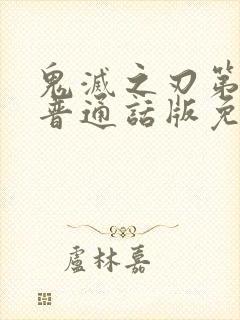 鬼滅之刃第
普通話版免
盧林嘉